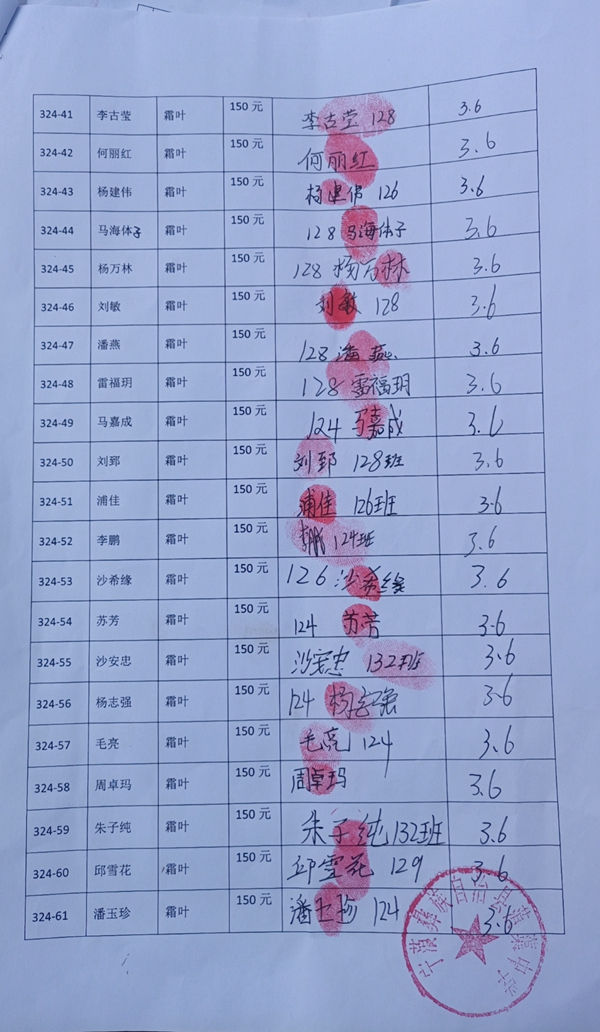 324-41 李古莹 霜叶 150 元 李古莹 128 3.6
324-42 何丽红 霜叶 150 元 何丽红 3.6
324-43 杨建伟 霜叶 150 元 杨建伟 126 3.6
324-44 马海体子 霜叶 150 元 128 马海体子 3.6
324-45 杨万林 霜叶 150 元 128 杨万林 3.6
324-46 刘敏 霜叶 150 元 刘敏 128 3.6
324-47 潘燕 霜叶 150 元 128 潘燕 3.6
324-48 雷福玥 霜叶 150 元 128 雷福玥 3.6
324-49 马嘉成 霜叶 150 元 124 马嘉成 3.6
324-50 刘郅 霜叶 150 元 刘郅 128班 3.6
324-51 浦佳 霜叶 150 元 浦佳 126班 3.6
324-52 李鹏 霜叶 150 元 李鹏 124班 3.6
324-53 沙希缘 霜叶 150 元 126 沙希缘 3.6
324-54 苏芳 霜叶 150 元 124 苏芳 3.6
324-55 沙安忠 霜叶 150 元 沙安忠 132班 3.6
324-56 杨志强 霜叶 150 元 124 杨志强 3.6
324-57 毛亮 霜叶 150 元 毛亮 124 3.6
324-58 周卓玛 霜叶 150 元 周卓玛 3.6
324-59 朱子纯 霜叶 150 元 朱子纯 132班 3.6
324-60 邱雪花 霜叶 150 元 邱雪花 129 3.6
324-61 潘玉珍 霜叶 150 元 潘玉珍 124 3.6
宁蒗彝族自治县